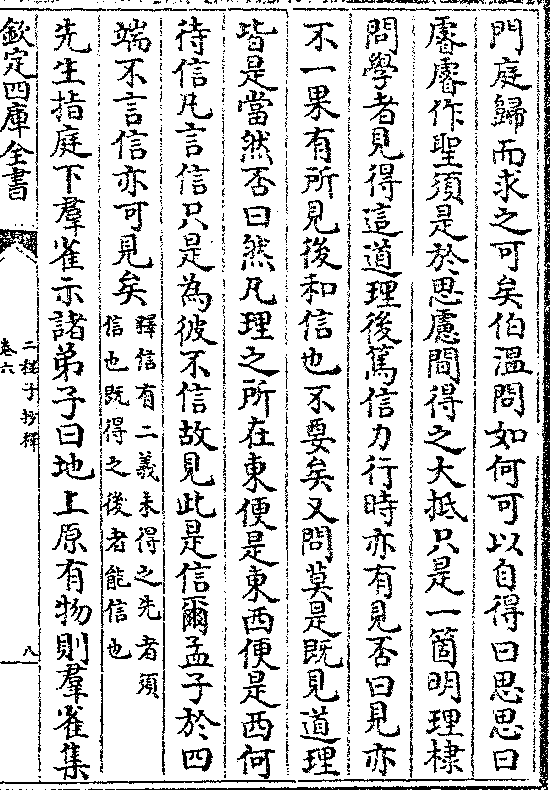 門庭歸而求之可矣伯溫問如何可以自得曰思思曰
睿睿作聖須是於思慮間得之大抵只是一箇明理棣
問學者見得這道理後篤信力行時亦有見否曰見亦
不一果有所見後和信也不要矣又問莫是既見道理
皆是當然否曰然凡理之所在東便是東西便是西何
待信凡言信只是為彼不信故見此是信爾孟子於四
端不言信亦可見矣
釋信有二義未得之先者須
信也既得之後者能信也
先生指庭下羣雀示諸弟子曰地上原有物則羣雀集
欽定四庫全書
二程子抄釋
卷六
八